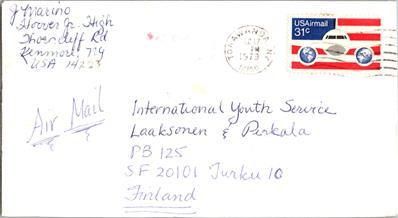 J Marino
Hoover Jr. High
Thorncliff Rd
Kenmore, NY
USA 14223
TONAWANDA, NY
PM
1979
USAirmail
31c
Air Mail
International Youth Service
Laaksonen & Pirkala
PB 125
SF 20101 Turku 10
Finland